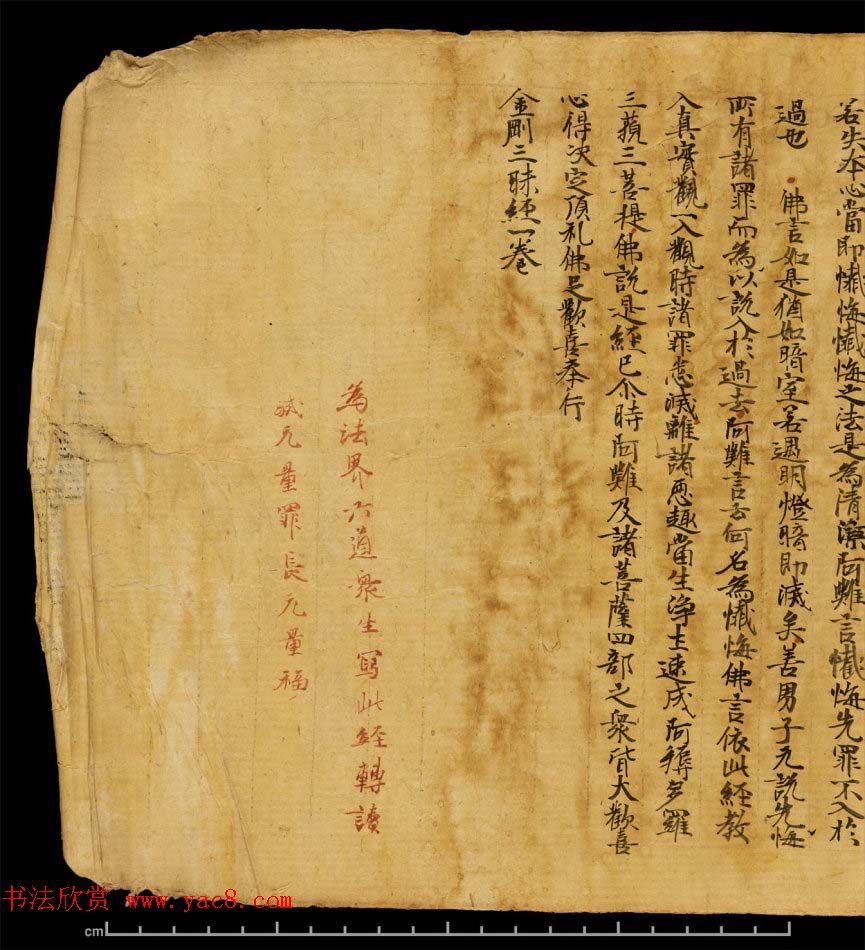 若失本心當即懺悔懺悔之法是為清涼阿難言懺悔先罪不入於
過也 佛言如是猶如暗室若遇明燈暗即滅矣善男子无說先悔
所有諸罪而為以說入於過去阿難言云何名為懺悔佛言依此經教
入真實觀一入觀時諸罪悉滅離諸惡趣當生淨土速成阿耨多羅
三藐三菩提佛說是經已尒時阿難及諸菩薩四部之衆皆大歡喜
心得決定頂礼佛足歡喜奉行
金剛三昧經一卷
為法界六道衆生寫此經轉讀
滅无量罪長无量福
书法欣赏 www.yac8.com
cm